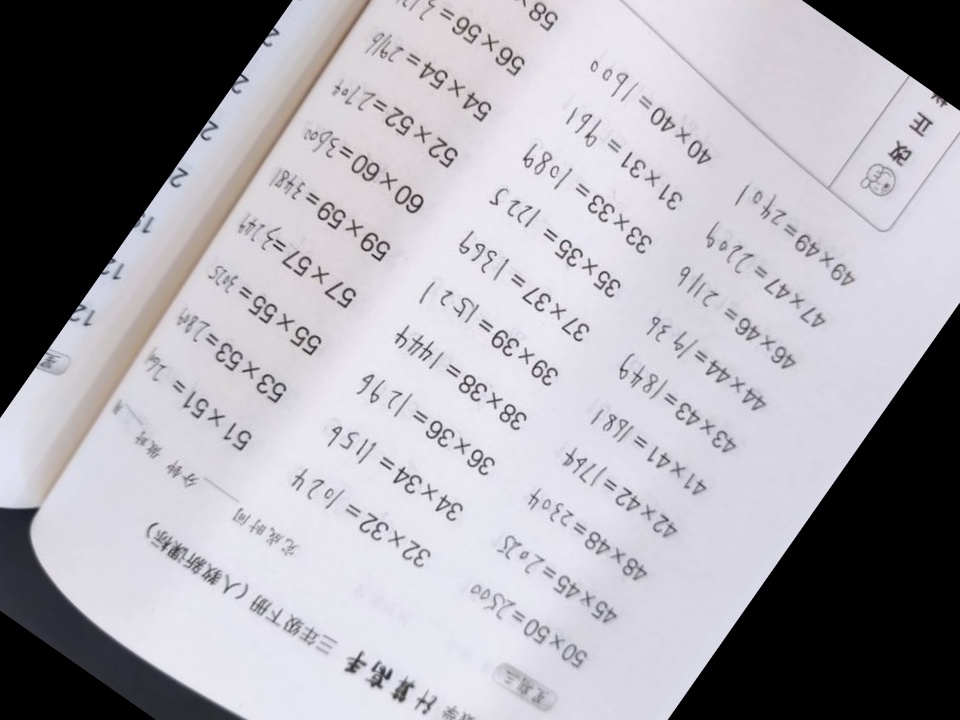 计算高手 三年级下册（人教新课标）
星期三
完成时间
分钟
50×50=2500
45×45=2025
48×48=2304
42×42=1764
41×41=1681
43×43=1849
44×44=1936
46×46=2116
47×47=2209
49×49=2401
32×32=1024
34×34=1156
36×36=1296
38×38=1444
39×39=1521
37×37=1369
35×35=1225
33×33=1089
31×31=961
40×40=1600
51×51=
53×53=2809
55×55=3025
57×57=3249
59×59=3481
60×60=3600
52×52=2704
54×54=2916
56×56=
58×
改
正